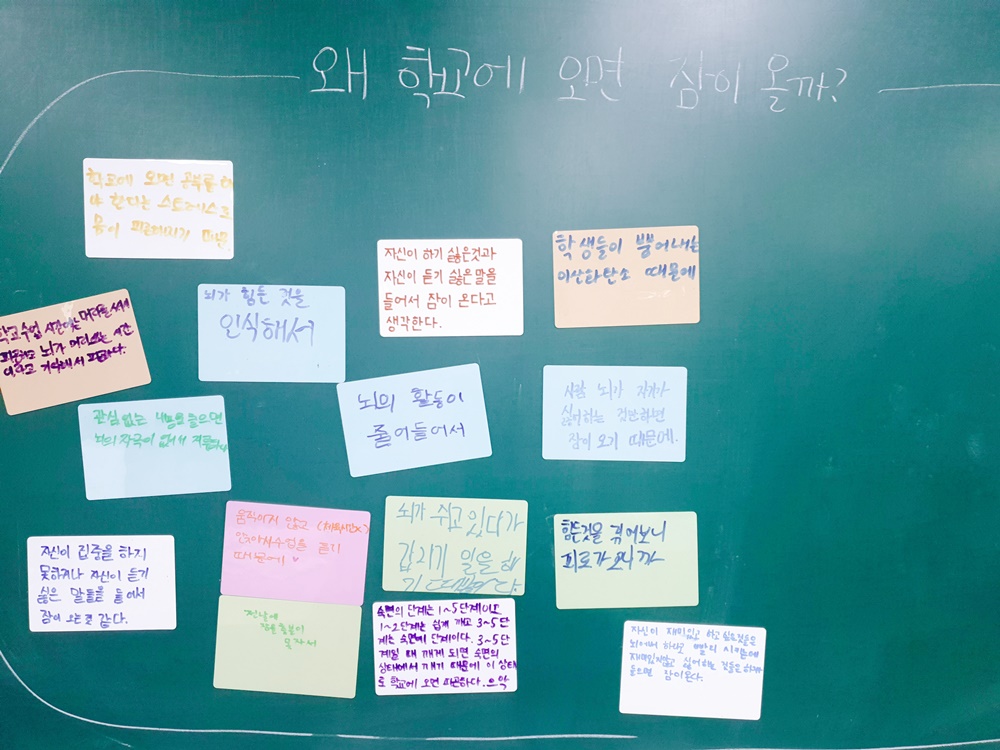 왜 학교에 오면 잠이 올까?
학교에 오면 공부를 해
야 한다는 스트레스로
몸이 피로해지기 때문
자신이 하기 싫은것과
자신이 듣기 싫은말을
들어서 잠이 온다고
생각한다.
학생들이 뿜어내는
이산화탄소 때문에
뇌가 힘든 것을
인식해서
학교수업 시간에는 머리를 써서
뇌가 머리쓰는 시간
이라고 기억해서 피곤하다.
뇌의 활동이
줄어들어서
사람 뇌가 자기가
싫어하는 것만하면
잠이 오기 때문에.
관심 없는 내용을 들으면
뇌의 자극이 없어서
움직이지 않고
앉아서수업을 듣기
때문에
뇌가 쉬고 있다가
갑자기 일을 해
기 때문이다.
힘든것을 겪어보니
피로가 오니까
자신이 집중을 하기
못하거나 자신이 듣기
싫은 말들을 들어서
잠이 오는 것 같다.
전날에
잠을 충분히
못 자서
숙면의 단계는 1~5단계이고
1~2단계는 쉽게 깨고 3~5단
계는 숙면에 단계이다. 3~5단
계일 때 깨게 되면 숙면의
상태에서 깨기 때문에 이 상태
로 학교에 오면 피곤하다.
자신이 재미있고 하고 싶은것들은
뇌에서 하나
재미있지않고 싫어하는 것들은 하거나
들으면 잠이온다.